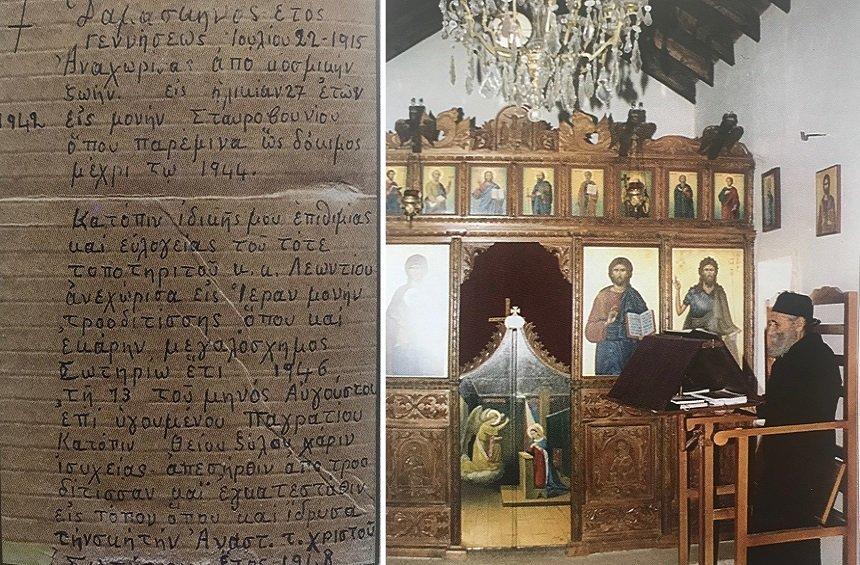 Δαμασκηνὸς ἔτος
γεννήσεως Ἰουλίου 22-1915
Ἀναχώρισας ἀπὸ κοσμικὴν
ζωὴν. εἰς ἡλικίαν 27 ἐτῶν
1942 εἰς μονὴν Σταυροβουνίου
ὅπου παρέμινα ὣς δόκιμος
μέχρι τω 1944.
Κατόπιν ἰδικῆς μου ἐπιθιμίας
καὶ εὐλογείας τοῦ τότε
τοποτηριτοῦ κ.κ. Λεωντίου
ἀνεχώρισα εἰς Ἱερὰν μονὴν
Τροοδιτίσσης ὅπου καὶ
ἐκάρην μεγαλόσχημος
Σωτηρίω ἔτι 1946
τῇ 13 τοῦ μηνὸς Αὐγούστου
ἐπὶ ὑγουμένου Παγρατίου
Κατόπιν Θείου ξύλου χάριν
ἰσυχείας. ἀπεσηρθιν ἀπὸ τροο
δίτισσαν καὶ ἐγκατεστάθιν
εἰς τόπον ὅπου καὶ ἵδρυσα
τὴν σκήτην Ἀναστ. τ. Χριστοῦ
ἔτος